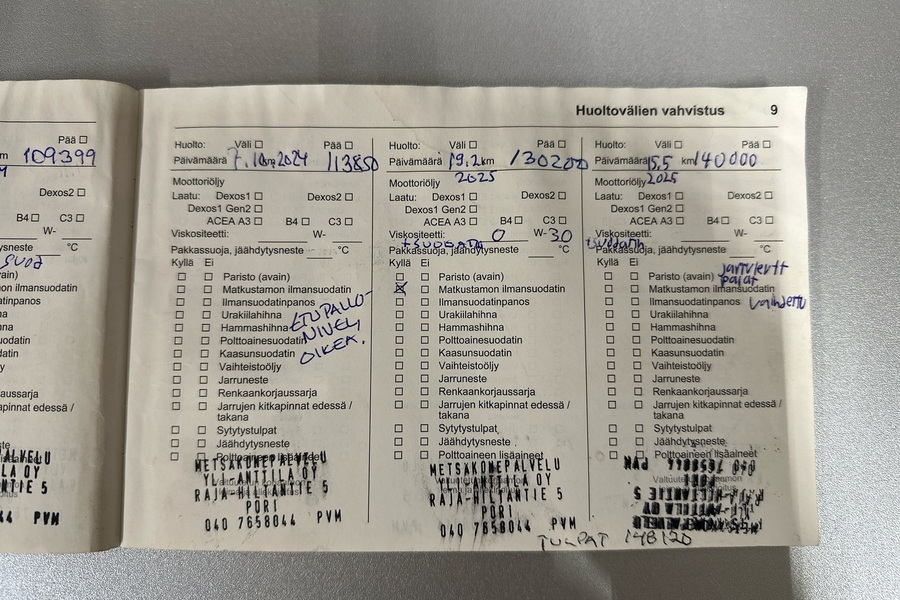 Huoltovälien vahvistus 9
Pää ☐
km 109399
Dexos2 ☐
B4 ☐ C3 ☐
W-
°C
suod
Huolto: Väli ☐ Pää ☐
Päivämäärä 7.10 km 2024 113850
Moottoriöljy
Laatu: Dexos1 ☐ Dexos2 ☐
Dexos1 Gen2 ☐
ACEA A3 ☐ B4 ☐ C3 ☐
Viskositeetti: W-
Pakkassuoja, jäähdytysneste °C
Kyllä Ei
☐ ☐ Paristo (avain)
☐ ☐ Matkustamon ilmansuodatin
☐ ☐ Ilmansuodatinpanos
☐ ☐ Urakiilahihna
☐ ☐ Hammashihna
☐ ☐ Polttoainesuodatin
☐ ☐ Kaasunsuodatin
☐ ☐ Vaihteistoöljy
☐ ☐ Jarruneste
☐ ☐ Renkaankorjaussarja
☐ ☐ Jarrujen kitkapinnat edessä /
takana
☐ ☐ Sytytystulpat
☐ ☐ Jäähdytysneste
☐ ☐ Polttoaineen lisäaineet
ETUPALLO-
NIVEL,
OIKEA.
METSÄKONEPALVELU
YL-ANTTILA OY
RAJA-HILTANTIE 5
PORI
040 7658044 PVM
Huolto: Väli ☐ Pää ☐
Päivämäärä 19.2 km 130200
2025
Moottoriöljy
Laatu: Dexos1 ☐ Dexos2 ☐
Dexos1 Gen2 ☐
ACEA A3 ☐ B4 ☐ C3 ☐
Viskositeetti: 0 W- 30
+SUODATIN
Pakkassuoja, jäähdytysneste °C
Kyllä Ei
☒ ☐ Paristo (avain)
☐ ☐ Matkustamon ilmansuodatin
☐ ☐ Ilmansuodatinpanos
☐ ☐ Urakiilahihna
☐ ☐ Hammashihna
☐ ☐ Polttoainesuodatin
☐ ☐ Kaasunsuodatin
☐ ☐ Vaihteistoöljy
☐ ☐ Jarruneste
☐ ☐ Renkaankorjaussarja
☐ ☐ Jarrujen kitkapinnat edessä /
takana
☐ ☐ Sytytystulpat
☐ ☐ Jäähdytysneste
☐ ☐ Polttoaineen lisäaineet
METSÄKONEPALVELU
YLI-ANTTILA OY
RAJA-HILTANTIE 5
PORI
040 7658044 PVM
Huolto: Väli ☐ Pää ☐
Päivämäärä 15.5 km 140000
2025
Moottoriöljy
Laatu: Dexos1 ☐ Dexos2 ☐
Dexos1 Gen2 ☐
ACEA A3 ☐ B4 ☐ C3 ☐
Viskositeetti: W-
Pakkassuoja, jäähdytysneste °C
Kyllä Ei
☐ ☐ Paristo (avain)
☐ ☐ Matkustamon ilmansuodatin
☐ ☐ Ilmansuodatinpanos
☐ ☐ Urakiilahihna
☐ ☐ Hammashihna
☐ ☐ Polttoainesuodatin
☐ ☐ Kaasunsuodatin
☐ ☐ Vaihteistoöljy
☐ ☐ Jarruneste
☐ ☐ Renkaankorjaussarja
☐ ☐ Jarrujen kitkapinnat edessä /
takana
☐ ☐ Sytytystulpat
☐ ☐ Jäähdytysneste
☐ ☐ Polttoaineen lisäaineet
palat
vaihdettu
040 7658044 PVM
TULPAT 148120